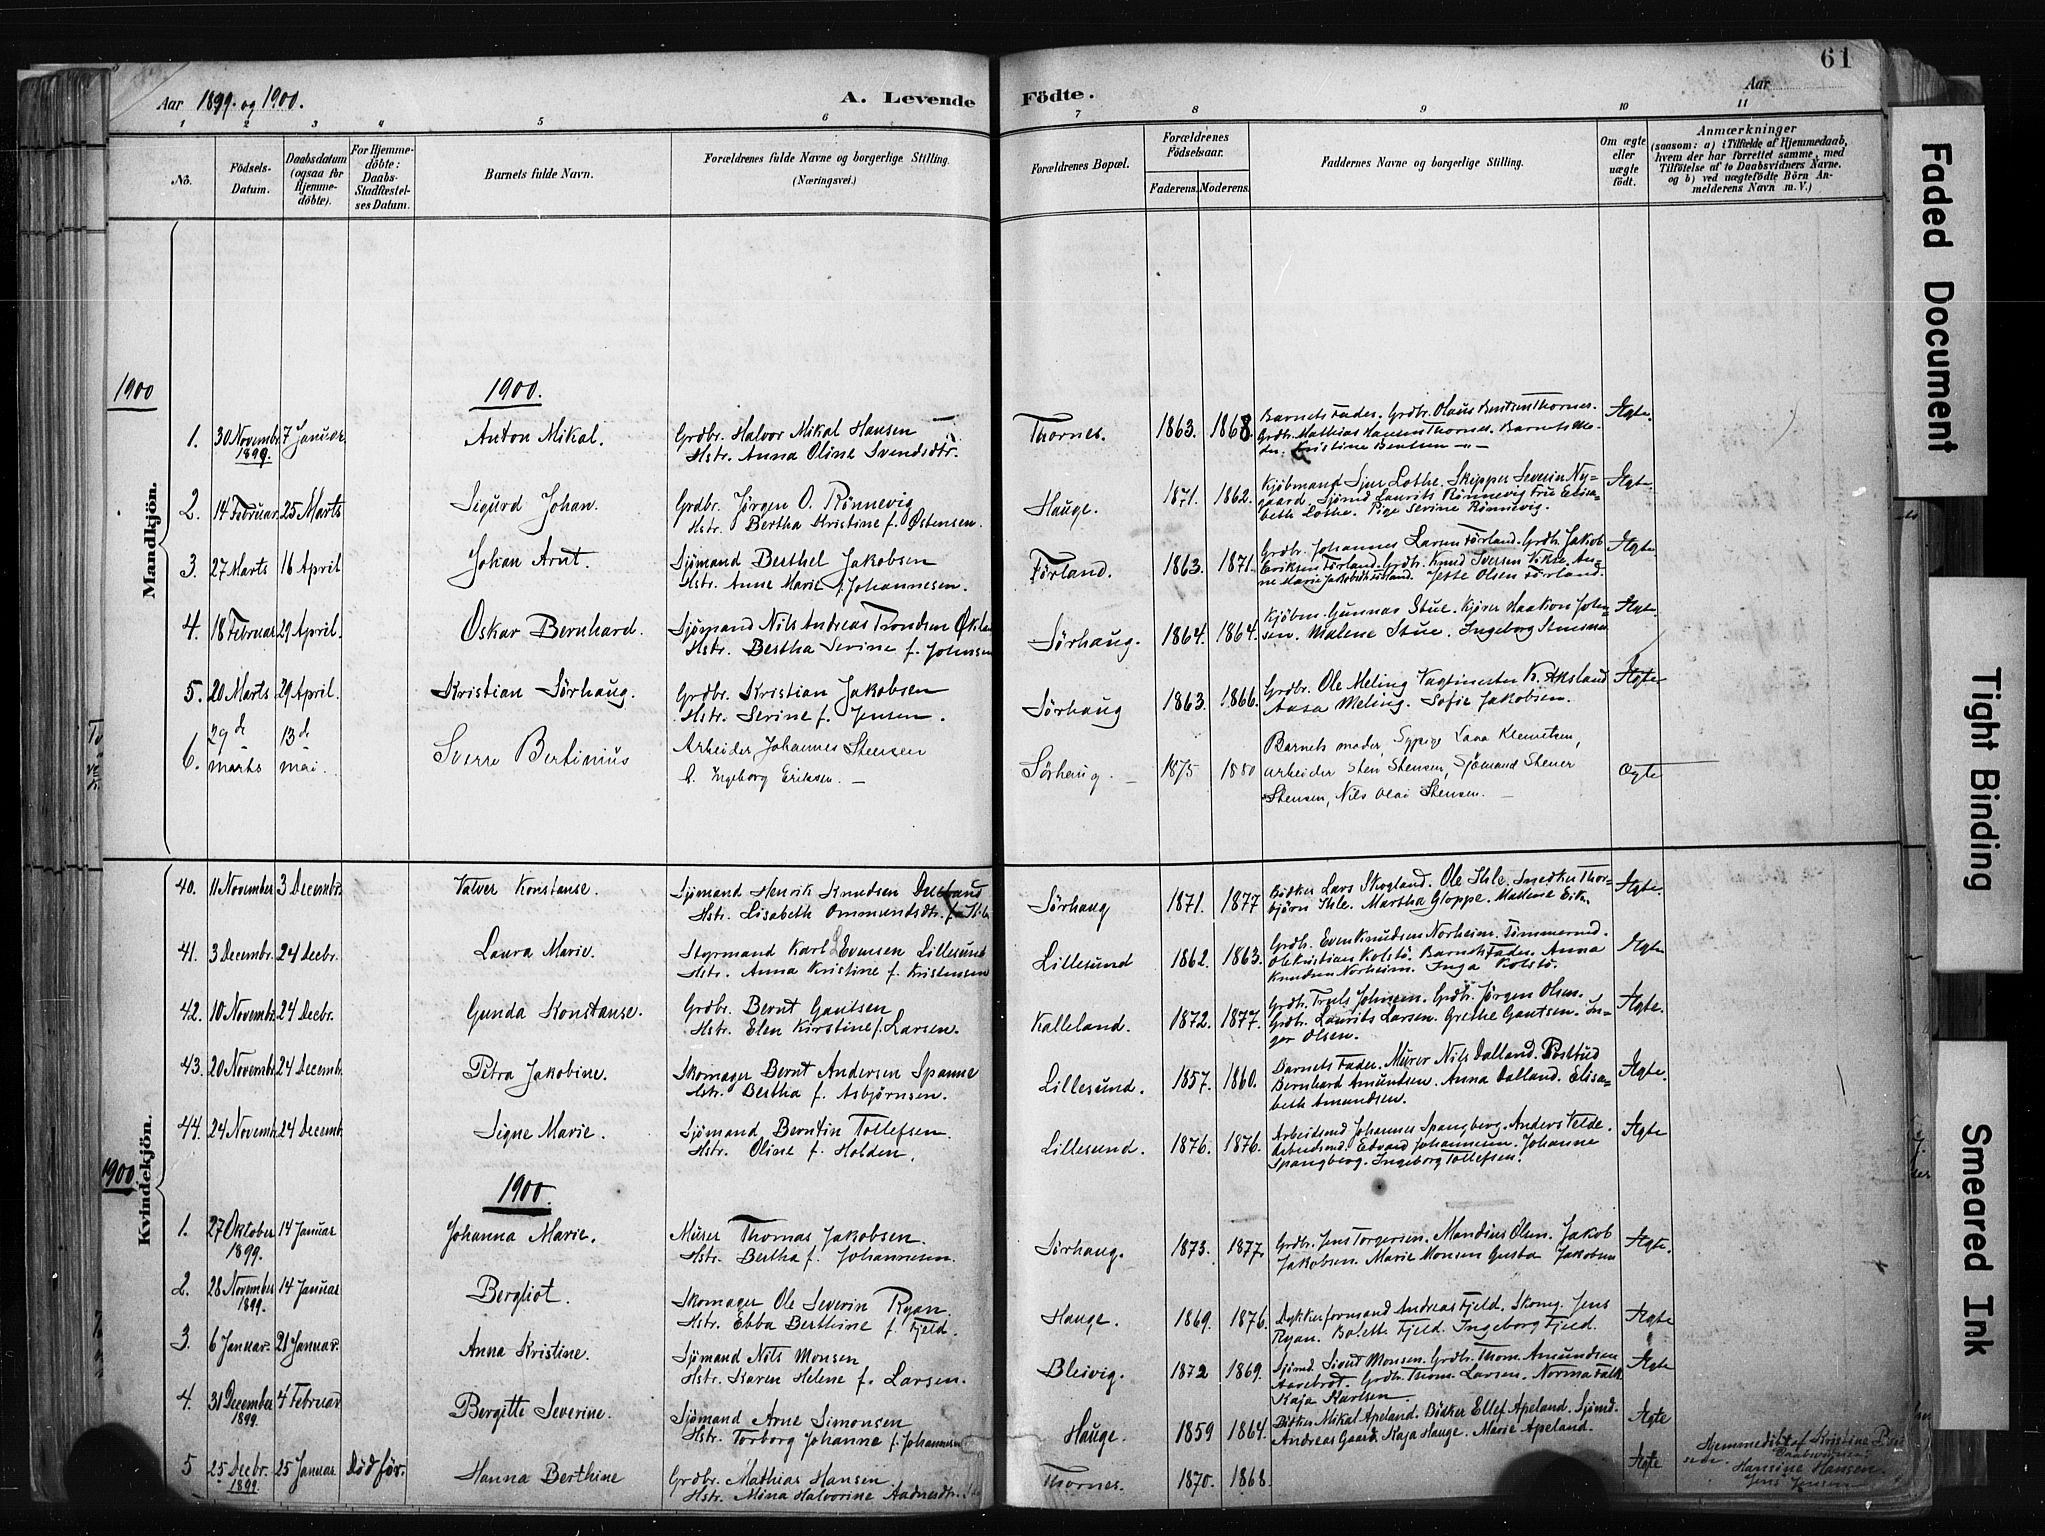 61
Aar 1899. og 1900.
A. Levende Födte.
Aar
1 2 3 4 5 6 7 8 9 10 11
No.
Födsels-Datum.
Daabsdatum (ogsaa for Hjemme-döbte).
For Hjemme-döbte: Daabs-Stadfæstel-ses Datum.
Barnets fulde Navn.
Forældrenes fulde Navne og borgerlige Stilling.
(Næringsvei.)
Forældrenes Bopæl.
Forældrenes Födselsaar.
Faderens. Moderens.
Faddernes Navne og borgerlige Stilling.
Om ægte eller uægte födt.
Anmærkninger
(saasom: a) i Tilfælde af Hjemmedaab,
hvem der har forrettet samme, med
Tilföielse af to Daabsvidners Navne.
og b) ved uægtefödte Börn An-
melderens Navn m. V.)
Mandkjön.
1900
1900.
1. 30 Novembr. 1899. 7 Januar. Anton Mikal. Grdbr. Halvor Mikal Hansen
Hstr. Anna Oline Svendsdtr. Thornes. 1863. 1868. Barnets Fader. Grdbr. Olaus Bentsen Thornes.
Grdbr. Mathias Hansen Thornes. Barnets Mo-
der. Kristine Bentsen Ægte.
2. 14 Februar. 25 Marts Sigurd Johan. Grdbr. Jørgen O. Rønnevig
Hstr. Bertha Kristine f. Østensen. Hauge. 1871. 1862. Kjøbmand Sjur Lothe. Skipper Severin Ny-
gaard. Sjømd Laurits Rønnevig Fru Elisa-
beth Lothe. Pige Sevine Rønnevig. Ægte
3. 27 Marts 16 April Johan Arnt. Sjømand Berthel Jakobsen
Hstr. Anne Marie f. Johannesen. Førland. 1863. 1871. Grdbr. Johannes Larsen Førland. Grdbr. Jakob
Eriksen Førland. Grdbr. Knud Iversen Vikse. An-
ne Marie Førland. Olsen Førland. Ægte.
4. 18 Februar 29 April. Oskar Bernhard. Sjømand Nils Andreas Trondsen
Hstr. Bertha Sevine f. Johnsen Sörhaug. 1864. 1864. Kjøbm. Gunnar Stue. Kjører Haakon John-
sen. Malene Stue. Ingeborg Ægte.
5. 20 Marts 29 April. Kristian Sörhaug. Grdbr. Kristian Jakobsen
Hstr. Sevine f. Jensen. Sörhaug 1863. 1866. Grdbr. Ole Meling Vagtmester K. Aksland
Aasa Meling. Sofie Jakobsen. Ægte
6. 29d marts 13d mai. Sverre Bertinius Arbeider Johannes Stensen
h. Ingeborg Eriksen. Sörhaug. 1875 1880 Barnets moder, Sypige Lava Klemetsen,
arbeider Sten Stensen, Sjömand Stener
Stensen, Nils Olai Stensen. Ægte
Kvindekjön.
40. 11 November 3 Decembr. Valver Konstanse. Sjömand Henrik Knudsen
Hstr. Lisabeth Ommundsdtr. Sörhaug 1871. 1877 Bödker Lars Skogland. Ole Ihle. Snedker Thor-
björn Ihle. Martha Gloppe. Malene Eik. Ægte.
41. 3 Decembr. 24 Decbr. Laura Marie. Styrmand Karl Evensen Lillesund
Hstr. Anna Kristine f. Kristensen Lillesund 1862. 1863. Grdb. Even Knudsen Norheim. Tömmermd.
Ole Kristian Kolstö. Barnets Fader. Anna
Knudsen Norheim. Inga Kolstö. Ægte
42. 10 Novembr. 24 Decbr. Gunda Konstanse. Grdbr. Bernt Gautsen
Hstr. Elen Kirstine f. Larsen. Kalleland. 1872. 1877. Grdb. Truls Johnsen. Grdb. Jørgen Olsen.
Grdb. Laurits Larsen. Grethe Gautsen. In-
ger Olsen. Ægte.
43. 20 Novembr. 24 Decemb. Petra Jakobine. Skomager Bernt Andersen Spanne
Hstr. Bertha f. Asbjørnsen. Lillesund. 1857. 1860. Barnets Fader. Murer Nils Dalland. Postbud
Bernhard Amundsen. Anna Dalland. Elisa-
beth Amundsen. Ægte.
44. 24 Novemb. 24 Decemb. Signe Marie. Sjömand Berntin Tollefsen.
Hstr. Oline f. Holden. Lillesund. 1876. 1876. Arbeidsmd Johannes Spangberg. Anders Velde.
Arbeidsmd. Edvard Johannesen. Johanne
Spangberg. Ingeborg Tollefsen. Ægte
1900
1900.
1. 27 Oktober 1899. 14 Januar Johanna Marie. Murer Thomas Jakobsen.
Hstr. Bertha f. Johannesen. Sörhaug. 1873. 1877. Grdb. Jens Torgersen. Mandius Olsen. Jakob
Jakobsen. Marie Monsen Gusta Jakobsen Ægte.
2. 28 November 1899. 14 Januar Bergliot. Skomager Ole Severin Ryan.
Hstr. Ebba Berthine f. Fjeld. Hauge. 1869. 1876. Dykkerformand Andreas Fjeld. Skomg. Jens
Ryan. Bolette Fjeld. Ingeborg Fjeld. Ægte
3. 6 Januar. 21 Januar. Anna Kristine. Sjømand Nils Monsen
Hstr. Karen Helene f. Larsen. Bleivig. 1872 1869. Sjømd. Sivert Monsen. Grdb. Thom. Amundsen
Aarebrot. Grdb. Thom. Larsen. Norma Falk.
Kaja Karlsen. Ægte
4. 31 December 1899. 4 Februar Bergitte Severine. Sjömand Arne Simonsen
Hstr. Torborg Johanne f. Johannesen Hauge. 1859 1864. Bödker Mikal Apeland. Bödker Ellef Apeland. Sjömd.
Andreas Gaard. Kaja Hauge. Marie Apeland. Ægte
5 25 Decbr. 1899 25 Januar Död før. Hanna Berthine Grdbr. Mathias Hansen
Hstr. Mina Halvorine Aadnesdtr. Thornes. 1870. 1868. Ægte Hjemmedöbt af Kristine
Hansine Hansen.
Jens Jensen
Faded Document
Tight Binding
Smeared Ink